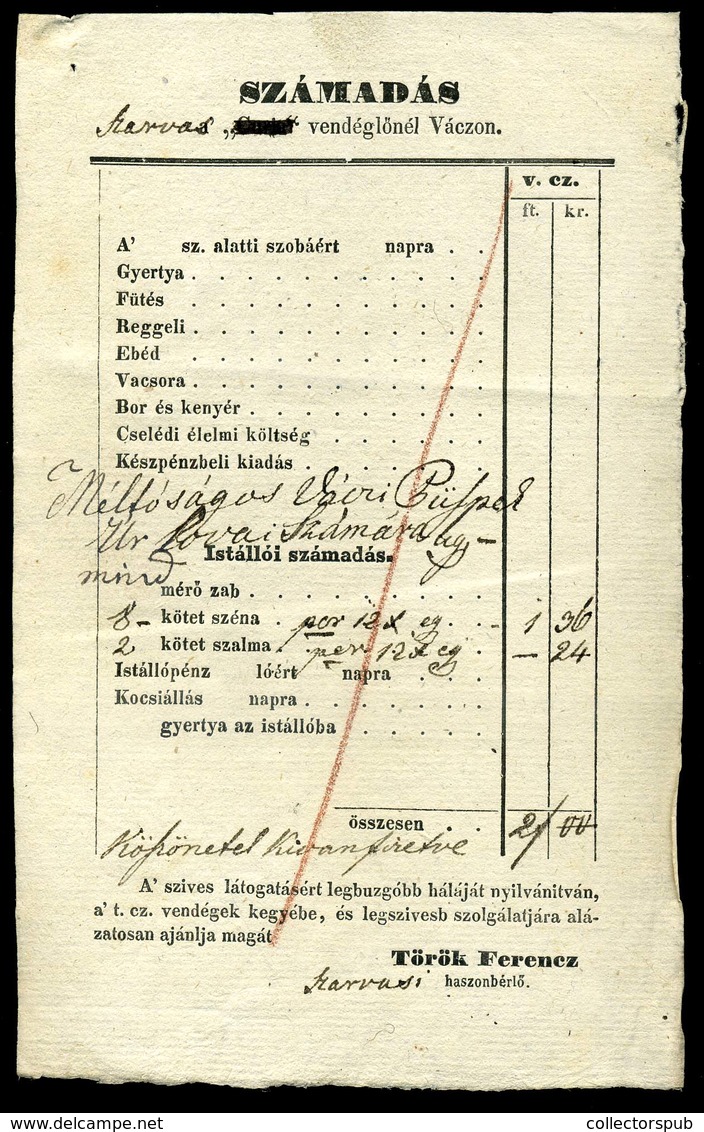 SZÁMADÁS
Szarvas „ “ vendéglőnél Váczon.
v. cz.
ft. kr.
A' sz. alatti szobáért napra . .
Gyertya . . . . . . . . . .
Fütés . . . . . . . . . .
Reggeli . . . . . . . . . .
Ebéd . . . . . . . . . .
Vacsora . . . . . . . . . .
Bor és kenyér . . . . . . . .
Cselédi élelmi költség . . . . . .
Készpénzbeli kiadás . . . . . . .
Méltóságos Váczi Püspek
Úr Lovai Számára ugy-
mind
Istállói számadás.
mérő zab . . . . . . . .
8 - kötet széna . per 12 x eg . - 1 36
2 kötet szalma . per 12 x eg - 24
Istállópénz lóért napra . . .
Kocsiállás napra . . . . . . .
gyertya az istállóba . . . . .
összesen . . 2/ 00
Köszönetel Kivanfizetve
A' szives látogatásért legbuzgóbb háláját nyilvánitván,
a' t. cz. vendégek kegyébe, és legszivesb szolgálatjára alá-
zatosan ajánlja magát
Török Ferencz
Szarvasi haszonbérlő.
delcampe.net
collectorspub